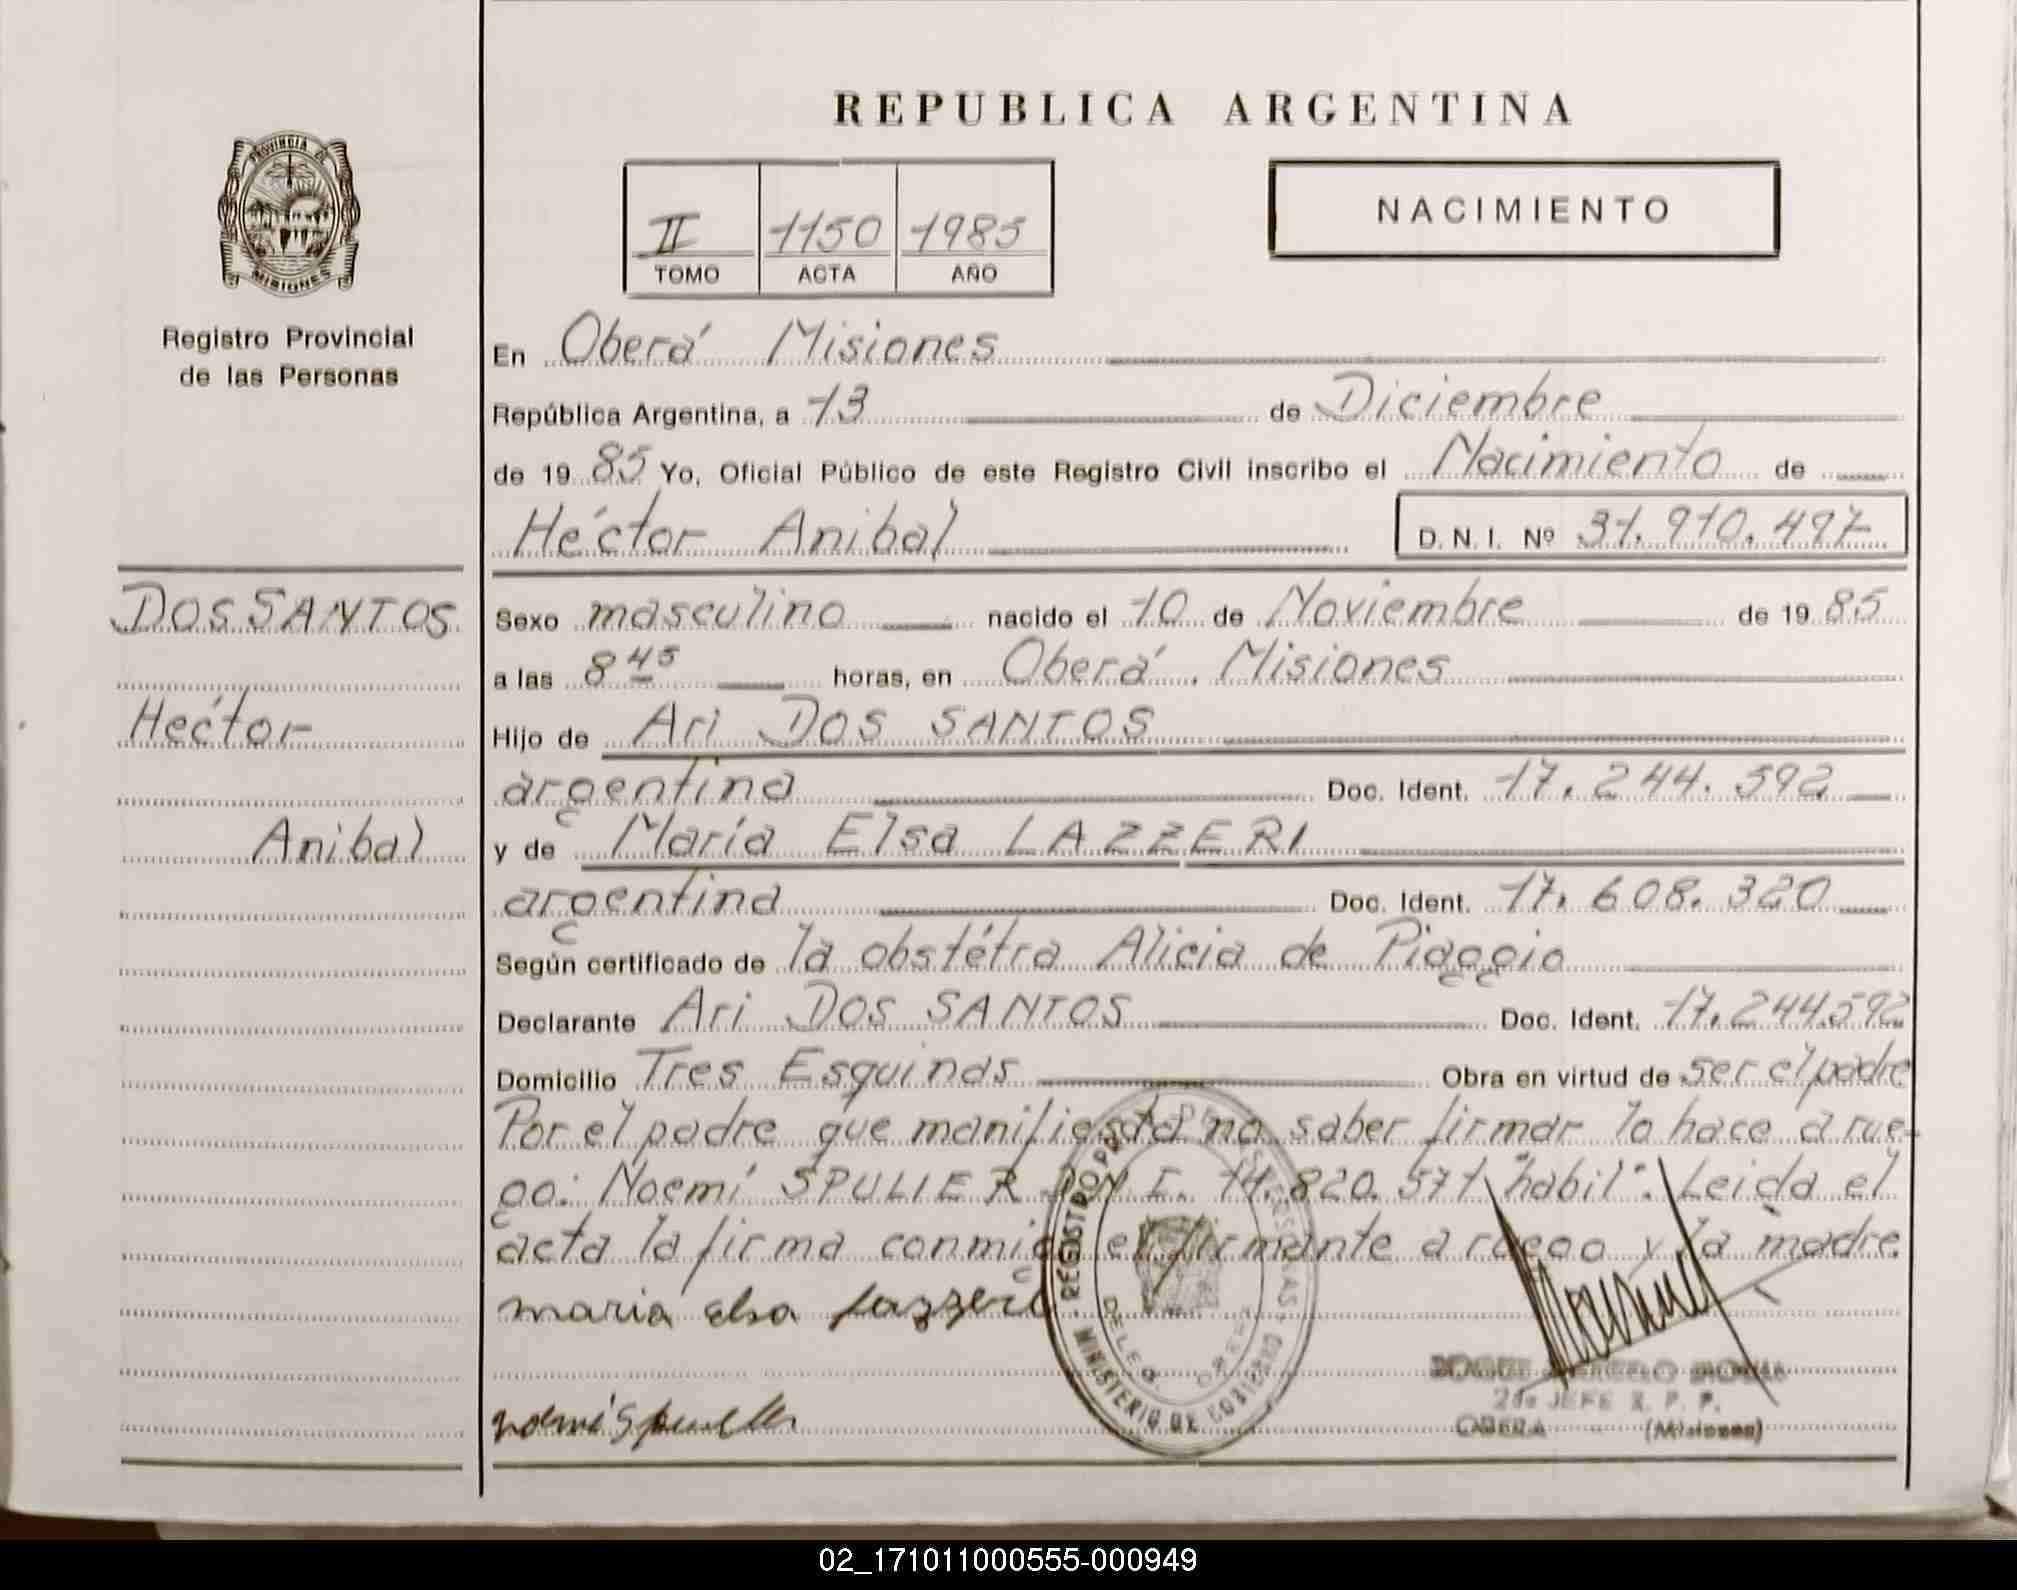 REPUBLICA ARGENTINA
PROVINCIA DE
MISIONES
Registro Provincial
de las Personas
II 1150 1985
TOMO ACTA AÑO
NACIMIENTO
En Oberá Misiones
República Argentina, a 13 de Diciembre
de 19 85 Yo, Oficial Público de este Registro Civil inscribo el Nacimiento de
Héctor Anibal D. N. I. Nº 31.910.497
DOS SANTOS
Héctor
Anibal
Sexo masculino nacido el 10 de Noviembre de 19 85
a las 8 45 horas, en Oberá. Misiones
Hijo de Ari DOS SANTOS
argentina Doc. Ident. 17.244.592
y de María Elsa LAZZERI
argentina Doc. Ident. 17.608.320
Según certificado de la obstétra Alicia de Piaggio
Declarante Ari DOS SANTOS Doc. Ident. 17.244.592
Domicilio Tres Esquinas Obra en virtud de ser el padre
Por el padre que manifiesta no saber firmar lo hace a rue-
go: Noemí SPULIER DNI. 14.820.571 "habil". Leida el
acta la firma conmigo el firmante a ruego y la madre
maria elsa lazzeri
REGISTRO PROV. DE LAS PERSONAS
MINISTERIO DE GOBIERNO
DELEG. OBERA
2do JEFE R. P. P.
OBERA (Misiones)
noemi Spuller
02_171011000555-000949